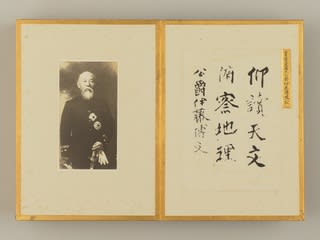 仰讀天文
俯察地理
公爵伊藤博文